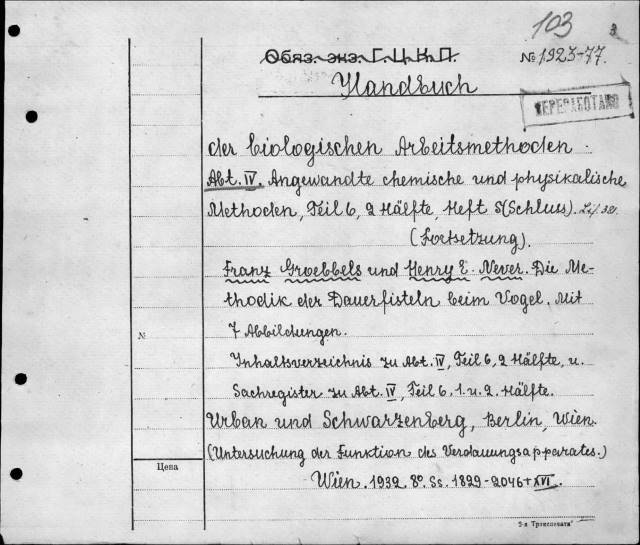 103
3
Обяз. экз. Г.Ц.К.П.
№ 1923-77.
Handbuch
ПЕРЕРАБОТАНО
der biologischen Arbeitsmethoden.
Abt. IV. Angewandte chemische und physikalische
Methoden, Teil 6, 2 Hälfte, Heft 5 (Schluss). Lif 382.
(Fortsetzung).
Franz Groebbels und Henry E. Never. Die Me-
thodik der Dauerfisteln beim Vogel. Mit
7 Abbildungen.
№
Inhaltsverzeichnis zu Abt. IV, Teil 6, 2 Hälfte, u.
Sachregister zu Abt. IV, Teil 6, 1. u. 2. Hälfte.
Urban und Schwarzenberg, Berlin, Wien.
(Untersuchung der Funktion des Verdauungsapparates.)
Цена
Wien. 1932. 8°. Ss. 1829-2046+XVI.